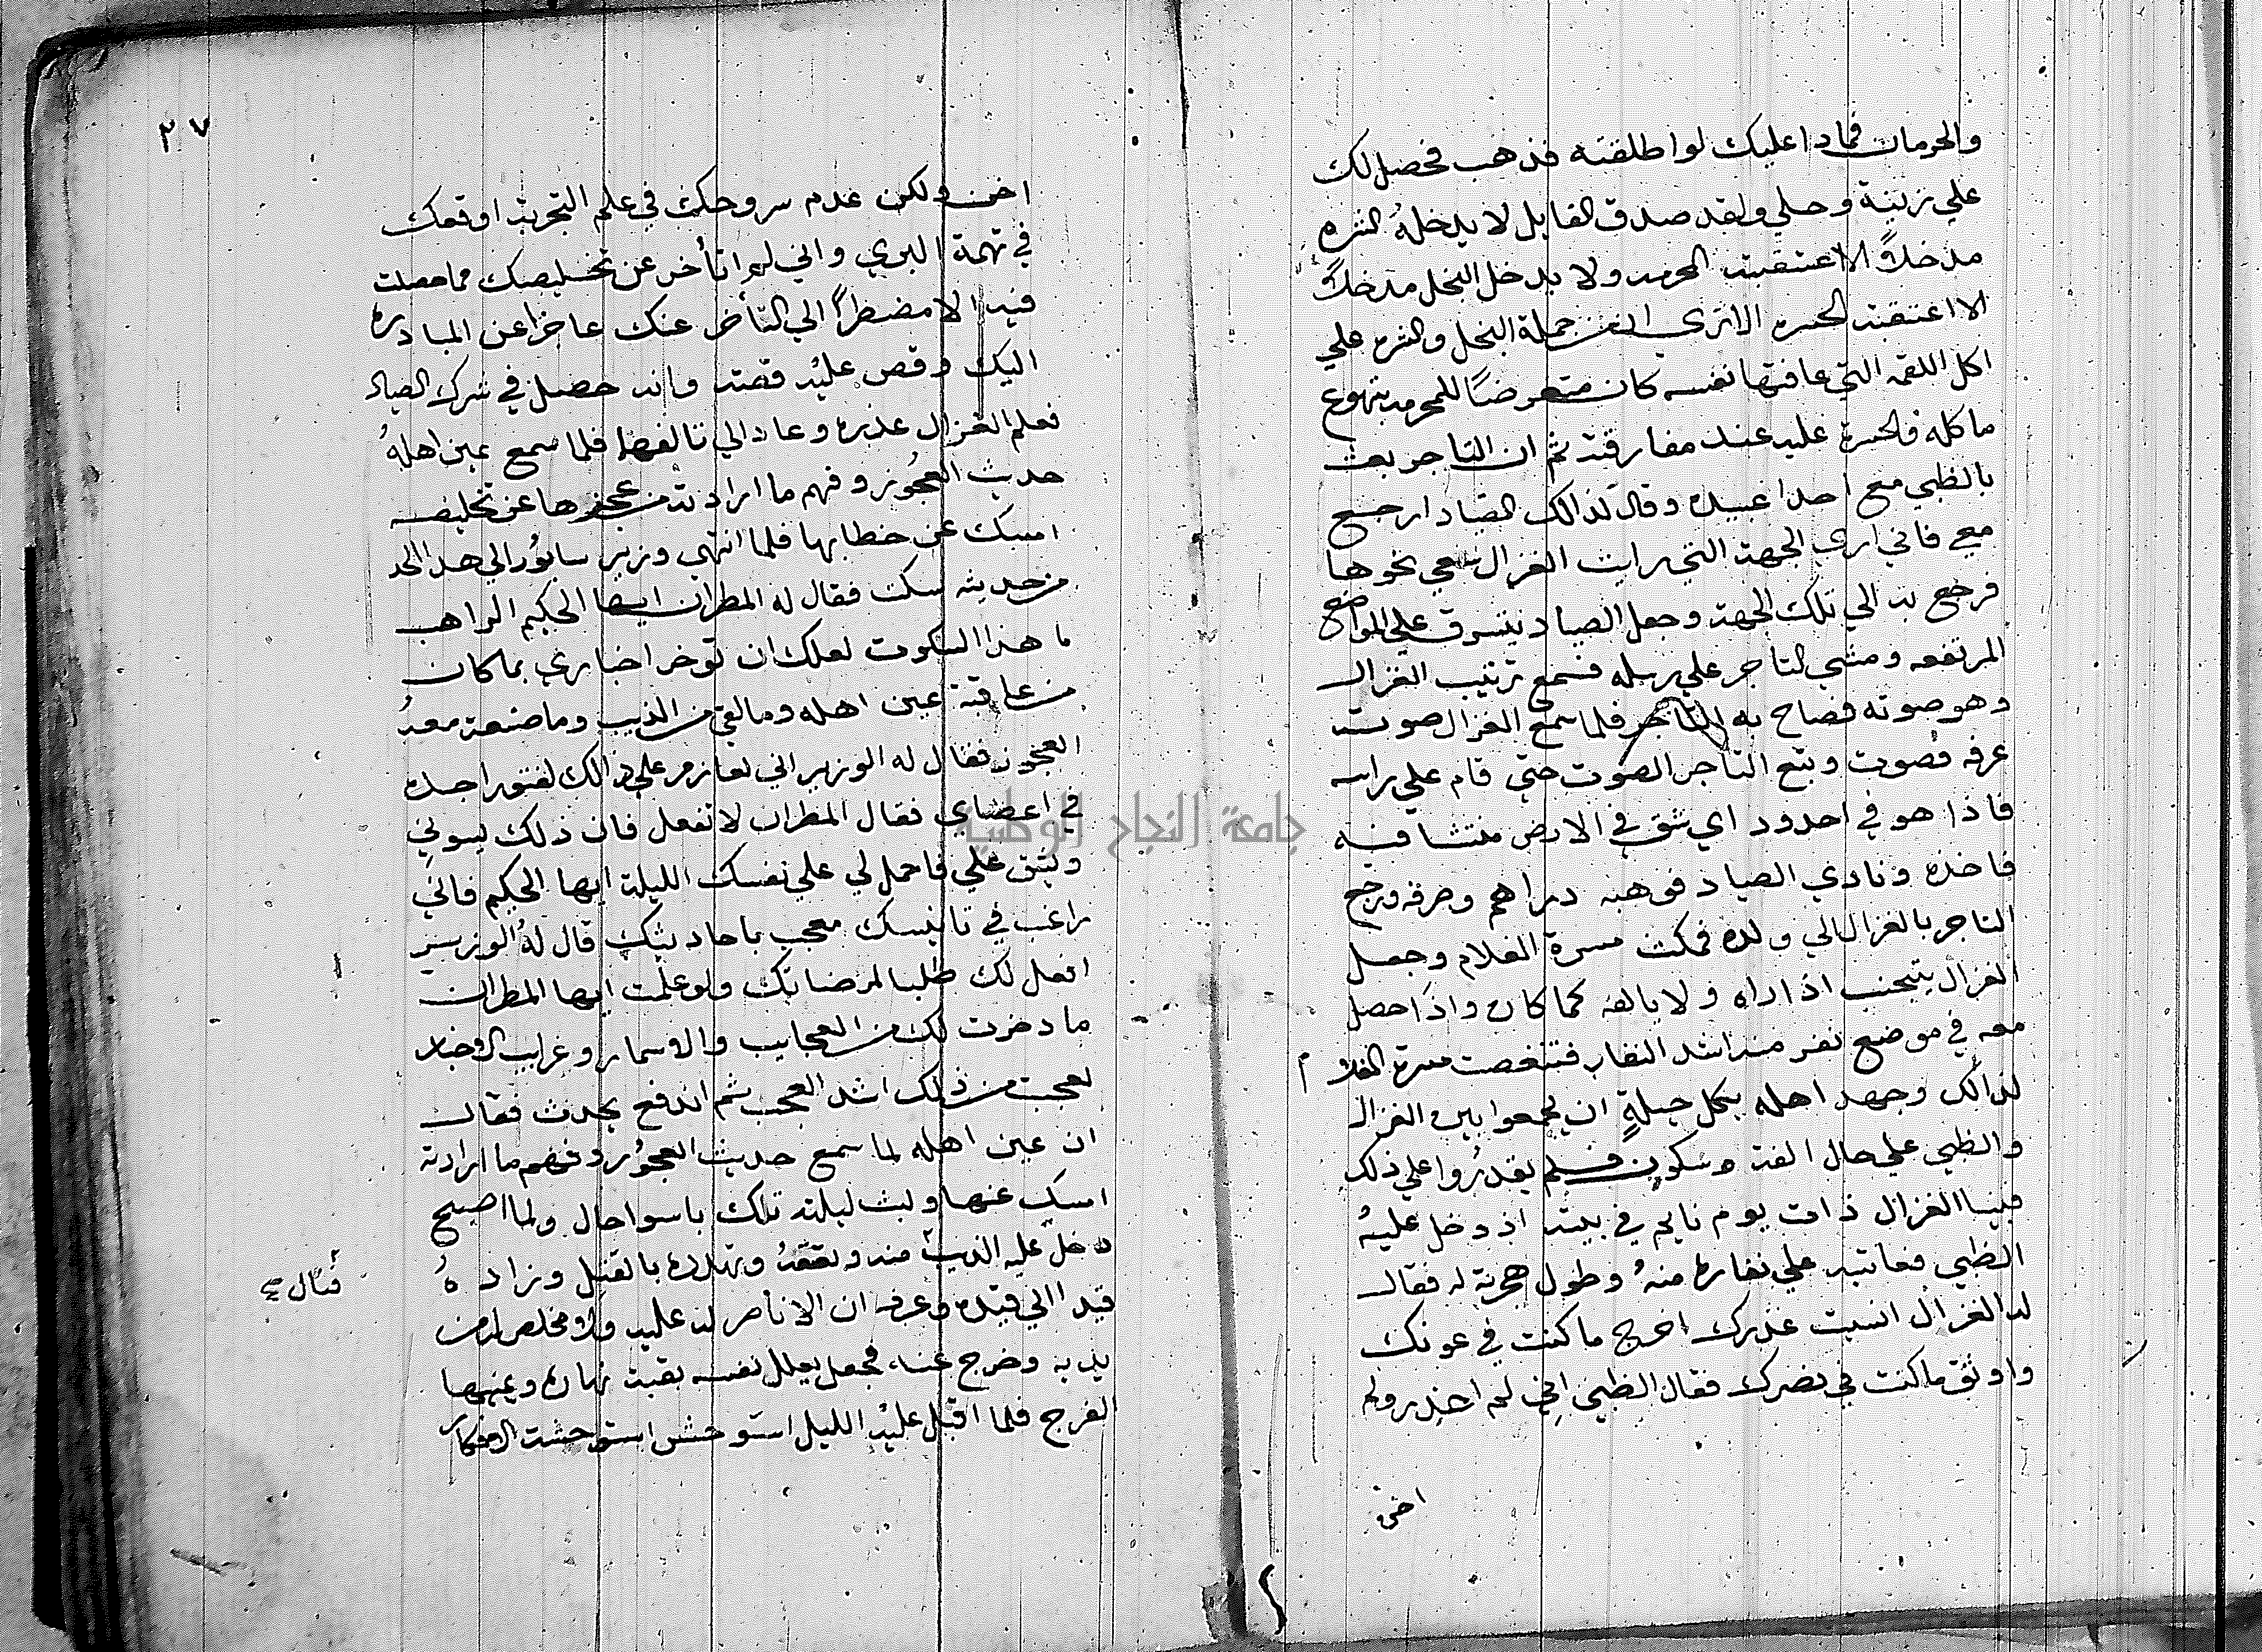 والحرمان فماذا عليك لو اطلقته فذهب فحصل لك
علي زينة وحلي ولقد صدق القايل لا يدخل الشره
مدخلاً الا اعتقبته الحرمه ولا يدخل البخل مدخلاً
الا اعتقبته الحسره الا تري ان من حملة البخل والشره علي
اكل اللقمه التي عافتها نفسه كان متعرضاً للحرمه بتهوع
ما كله والحسرة عليه عند مفارقته ثم ان التاجر بعث
بالظبي مع احد اعبيده وقال لذالك الصياد ارجع
معي فاني اري الجهة التي رايت الغزال سعي نحوها
فرجع به الي تلك الجهة وجعل الصياد يتسرق علي المواضع
المرتفعه ومشي التاجر علي رسله فسمع ترتيب الغزال
وهو صوته فصاح به التاجر فلما سمع الغزال صوت
عرفه فصوت وتبع التاجر الصوت حتي قام علي راسه
فاذا هو في احدود اي شق في الارض منتشا فيه
فاخذه ونادي الصياد فوهبه دراهم وصرفه ورجع
التاجر بالغزال الي ولده فمكث مسرة الغلام وجعل
الغزال يتجنب اذا راه ولا يالفه كما كان واذا حصل
معه في موضع نفر منه اشد النفار فتنغصت مسرة الغلام
لذالك وجهد اهله بكل حيلةٍ ان يجمعوا بين الغزال
والظبي علي حال الفة وسكون فلم يقدروا علي ذلك
فبينا الغزال ذات يوم نايم في بيته اذ دخل عليه
الظبي فعاتبه علي نفاره منهُ وطول هجرته له فقال
له الغزال انسيت غدرك احوج ما كنت في عونك
واوثق ما كنت في نصرك فقال الظبي اني لم اغدر ولم
اخن
٢٧
اخن ولكن عدم سروحك في علم التجربة اوقعك
في تهمة البري واني لم اتأخر عن تخليصك مما حصلت
فيه الا مضطراً الي التأخر عنك عاجزا عن المبادرة
اليك وقص عليه قصته وانه حصل في شرك الصياد
فعلم الغزال عذره وعاد الي تالفها فلما سمع عين اهلهُ
حديث العجوز وفهم ما ارادته من عجزها عن تخليصه
امسك عن خطابها فلما انتهي وزير سابور الي هذا الحد
من حديثه سكت فقال له المطران ايها الحكيم الراهب
ما هذا السكوت لعلك ان توخر اخباري بما كان
من عاقبة عين اهله وما لقي من الذيب وما صنعة معهُ
العجوز فقال له الوزير اني لعازم علي ذالك لفتور اجده
في اعضاي فقال المطران لا تفعل فان ذلك يسوني
ويشق علي فاحمل لي علي نفسك الليلة ايها الحكيم فاني
راغب في تانيسك معجب باحاديثك قال لهُ الوزير
افعل لك طلبا لمرضاتك ولو علمت ايها المطران
ما دخرت لك من العجايب والاسمار وغرايب الاخبار
لعجبت من ذلك اشد العجب ثم اندفع يحدث فقال
ان عين اهله لما سمع حديث العجوز وفهم ما ارادته
امسك عنها ولبث ليلته تلك باسوا حال ولما اصبح
دخل عليه الذيب منه وتعقفهُ وتهدده بالقتل وزاده
قيدا الي قيده وعرفه ان لا ناصر له عليه ولا مخلص له من
يديه وخرج عنه، فجعل يعلل نفسه بقيت نهاره ويمنيها
الفرج فلما اقبل عليه الليل استوحش استوحشت الافكار
فتال
جامعة النجاح الوطنية